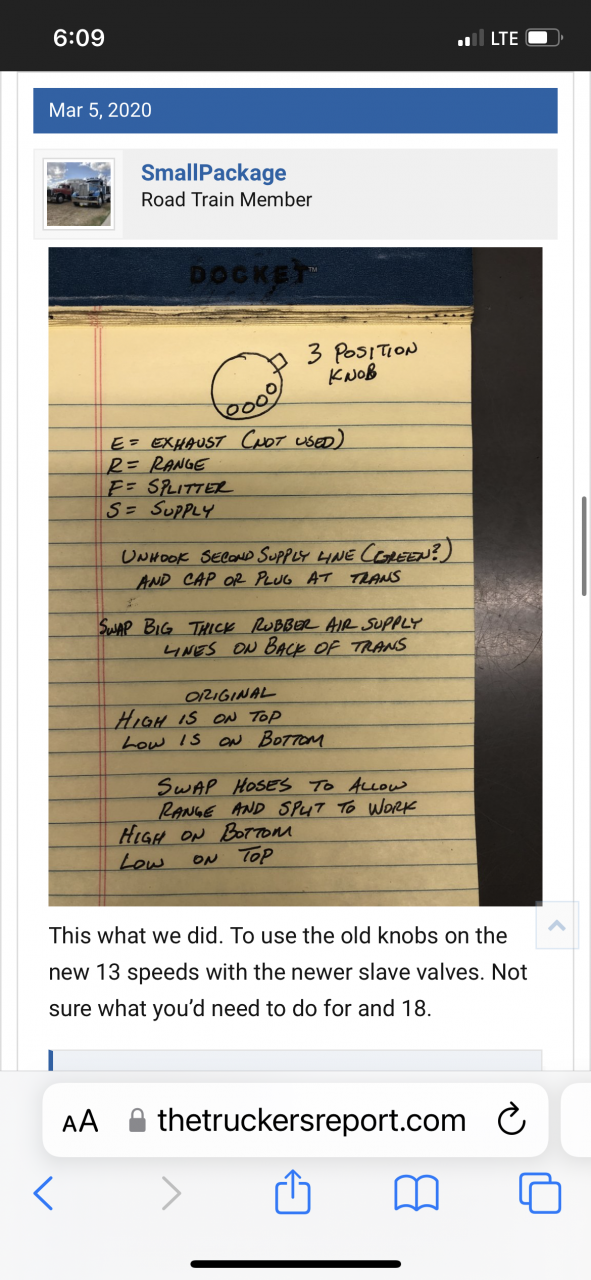 6:09
LTE
Mar 5, 2020
SmallPackage
Road Train Member
DOCKET™
3 POSITION
KNOB
E = EXHAUST (NOT USED)
R = RANGE
F = SPLITTER
S = SUPPLY
UNHOOK SECOND SUPPLY LINE (GREEN?)
AND CAP OR PLUG AT TRANS
SWAP BIG THICK RUBBER AIR SUPPLY
LINES ON BACK OF TRANS
ORIGINAL
HIGH IS ON TOP
LOW IS ON BOTTOM
SWAP HOSES TO ALLOW
RANGE AND SPLIT TO WORK
HIGH ON BOTTOM
LOW ON TOP
This what we did. To use the old knobs on the
new 13 speeds with the newer slave valves. Not
sure what you’d need to do for and 18.
AA thetruckersreport.com